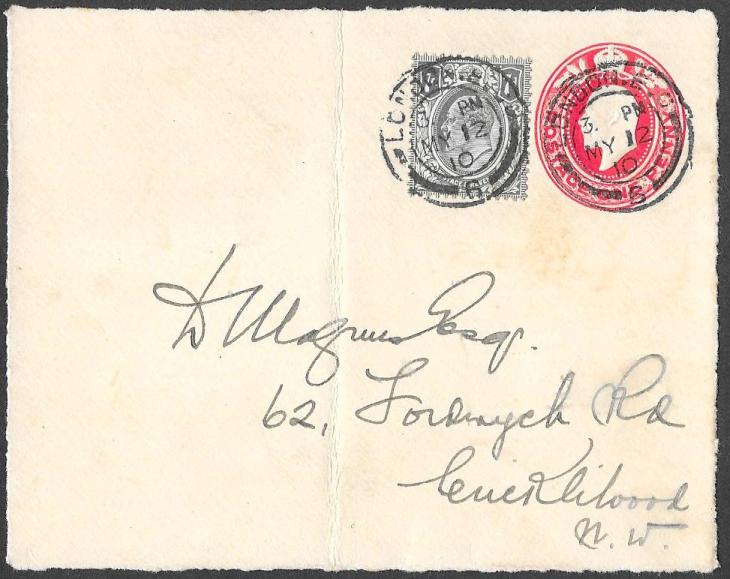 LONDON. E.
3. PM
MY 12
10
S
LONDON. E.
3. PM
MY 12
10
S
POSTAGE ONE PENNY
D Magnus Esq.
62, Fordwych Rd
Cricklewood
N. W.